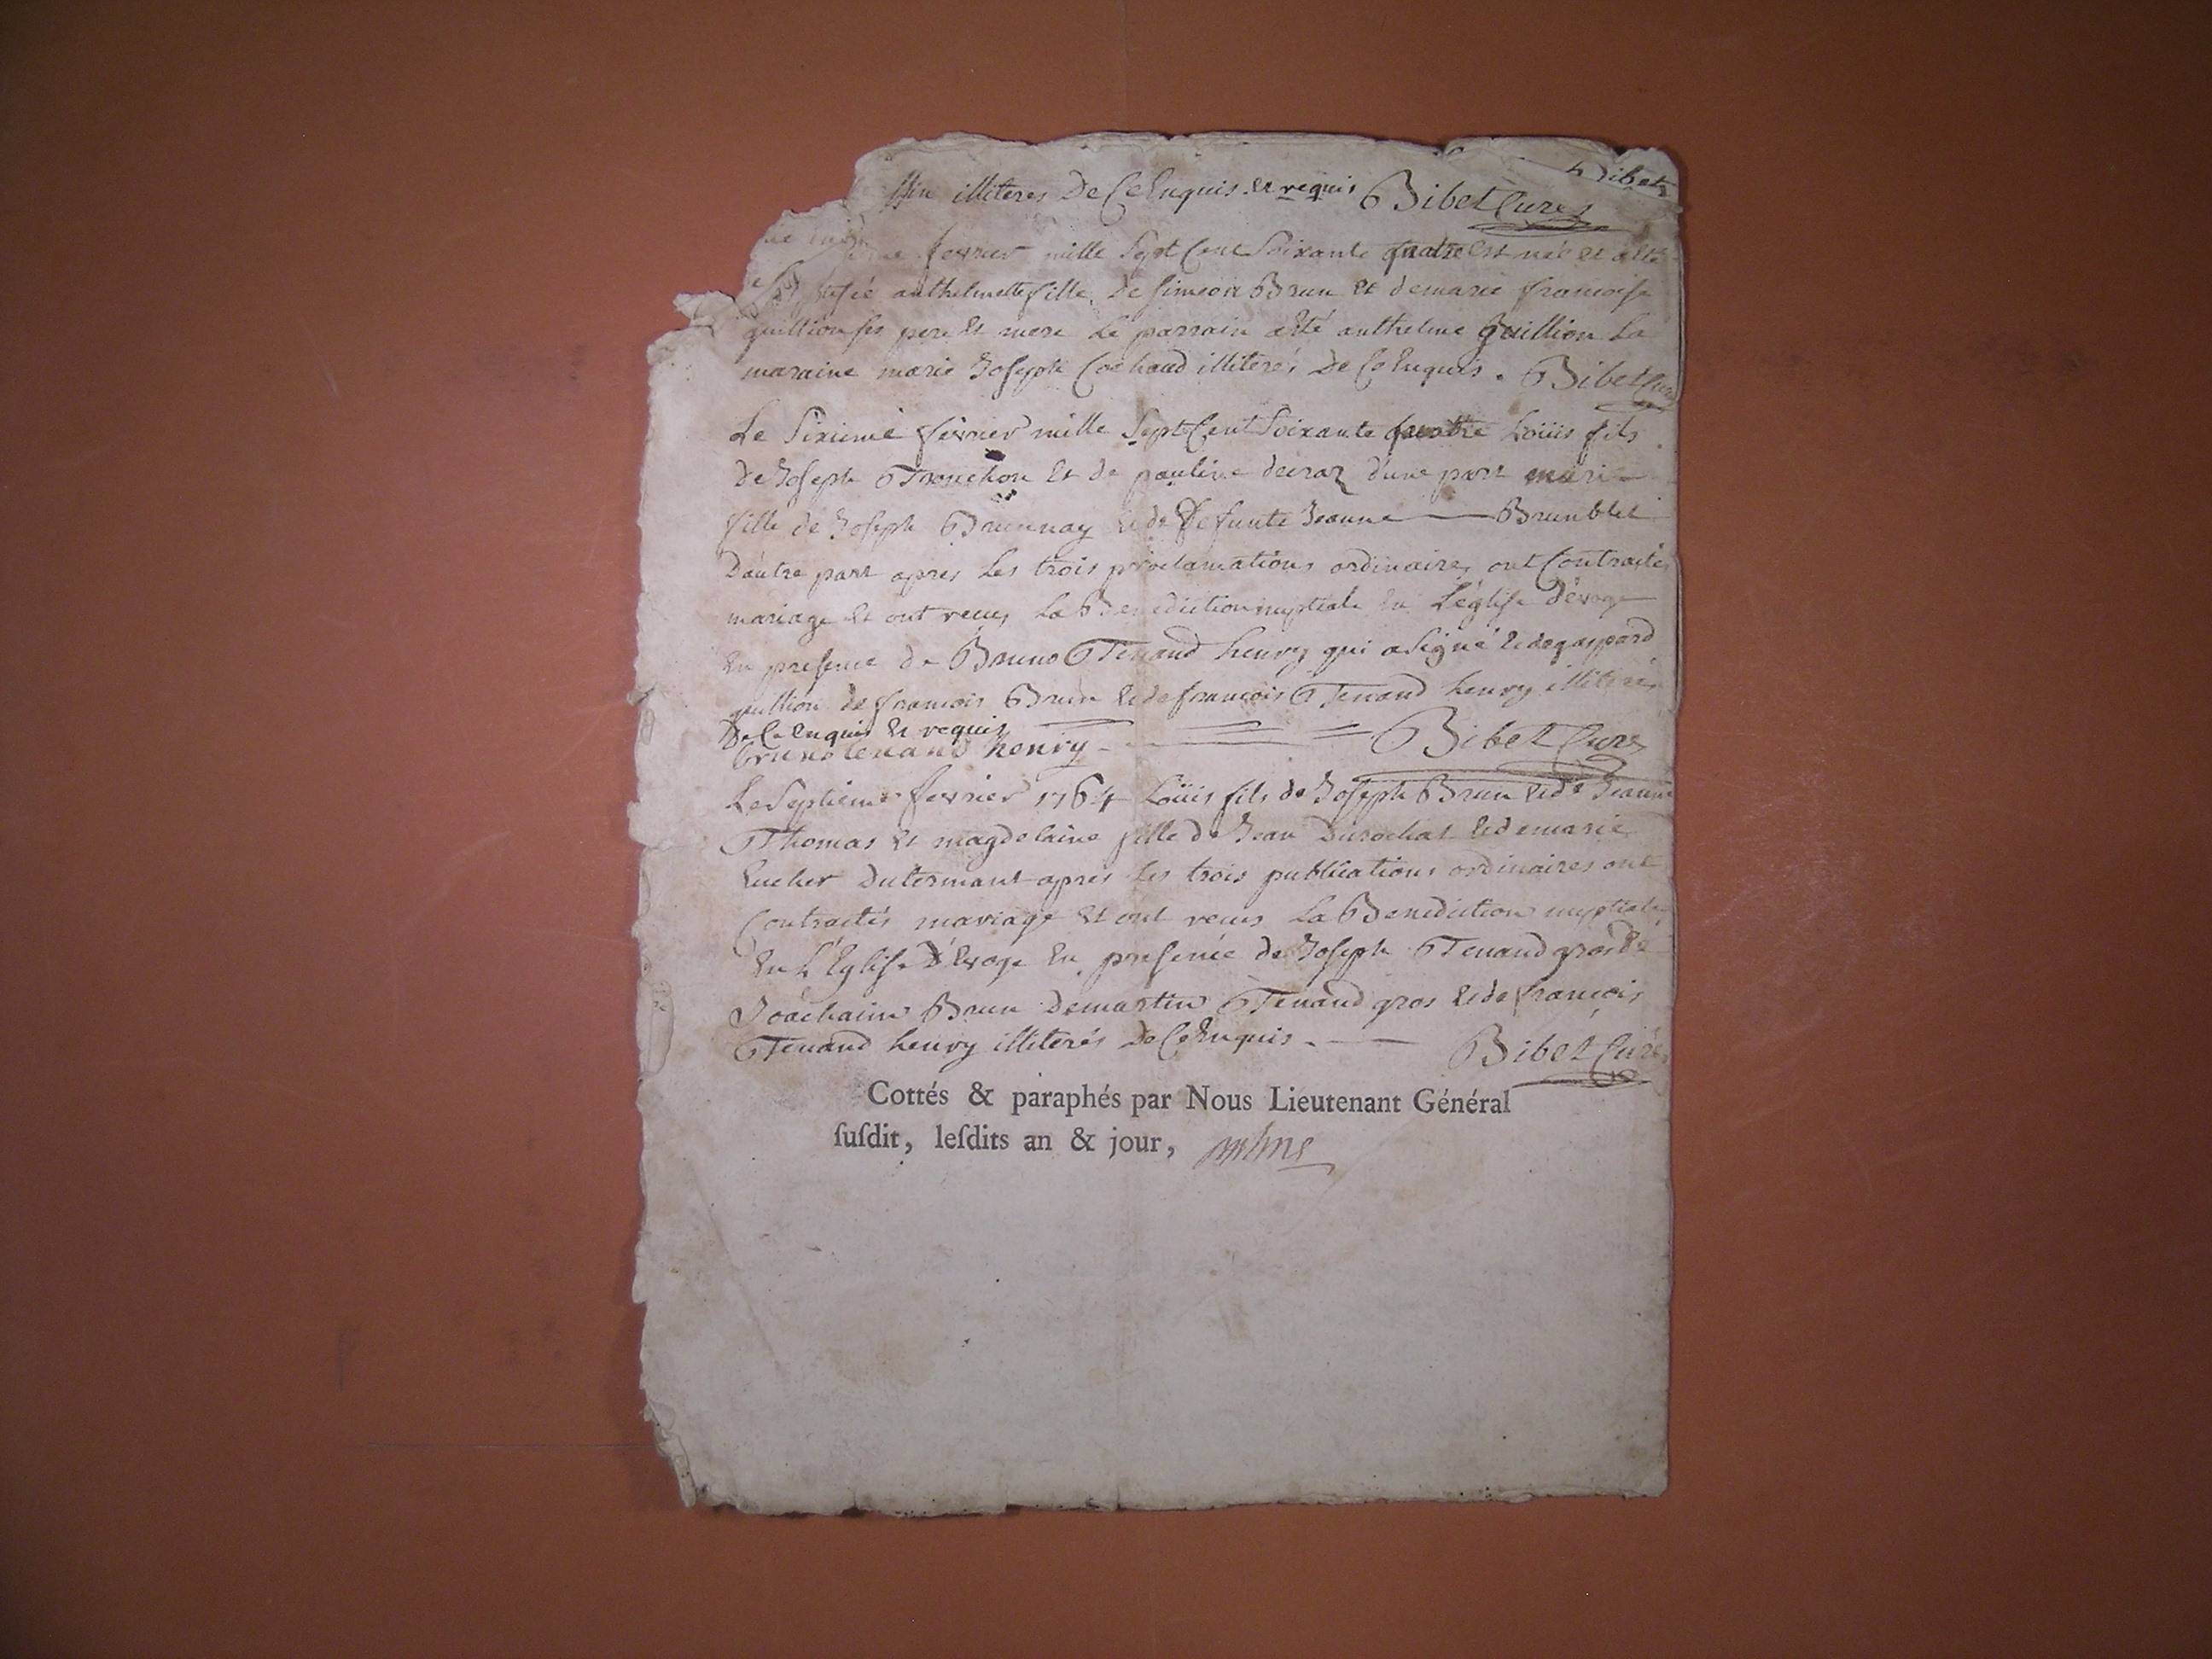 Bibet
illiteres De Ce Enquis et requis Bibet Cure
fevrier mille Sept Cent Soixante quatre Est née et a été
anthelmette fille De Simeon Brun et de marie francoise
guillion ses pere Et mere Le parrain a été anthelme guillion La
maraine marie Joseph Cochand illiterés De Ce Enquis . Bibet Cure
Le Sixieme fevrier mille Sept Cent Soixante quatre Loüis fils
De Joseph Tronchon Et de pauline d'une part marie
fille de Joseph Brunnay et de Defunte Jeanne Brunblet
D'autre part apres Les trois proclamations ordinaires ont Contractés
mariage Et ont recus La Benediction nuptiale En L'églisse D'evoge
En presence de Bruno Tenand henry qui a Signé et de gaspard
guillion de francois Brun Et de francois Tenand henry illiterés
De Ce Enquis Et requis
bruno tenand henry Bibet Cure
Le Septieme fevrier 1764 Loüis fils de Joseph Brun Et de Jeanne
Thomas Et magdelaine fille de Jean Durochat Et de marie
Eucher Dutermant apres Les trois publications ordinaires ont
Contractés mariage Et ont recus La Benediction nuptiale
En L'Eglise D'Evoge En presence de Joseph Tenand gros De
Joachaim Brun De martin Tenand gros Et de francois
Tenand henry illiterés De Ce Enquis Bibet Curé
Cottés & paraphés par Nous Lieutenant Général
ſuſdit, leſdits an & jour,